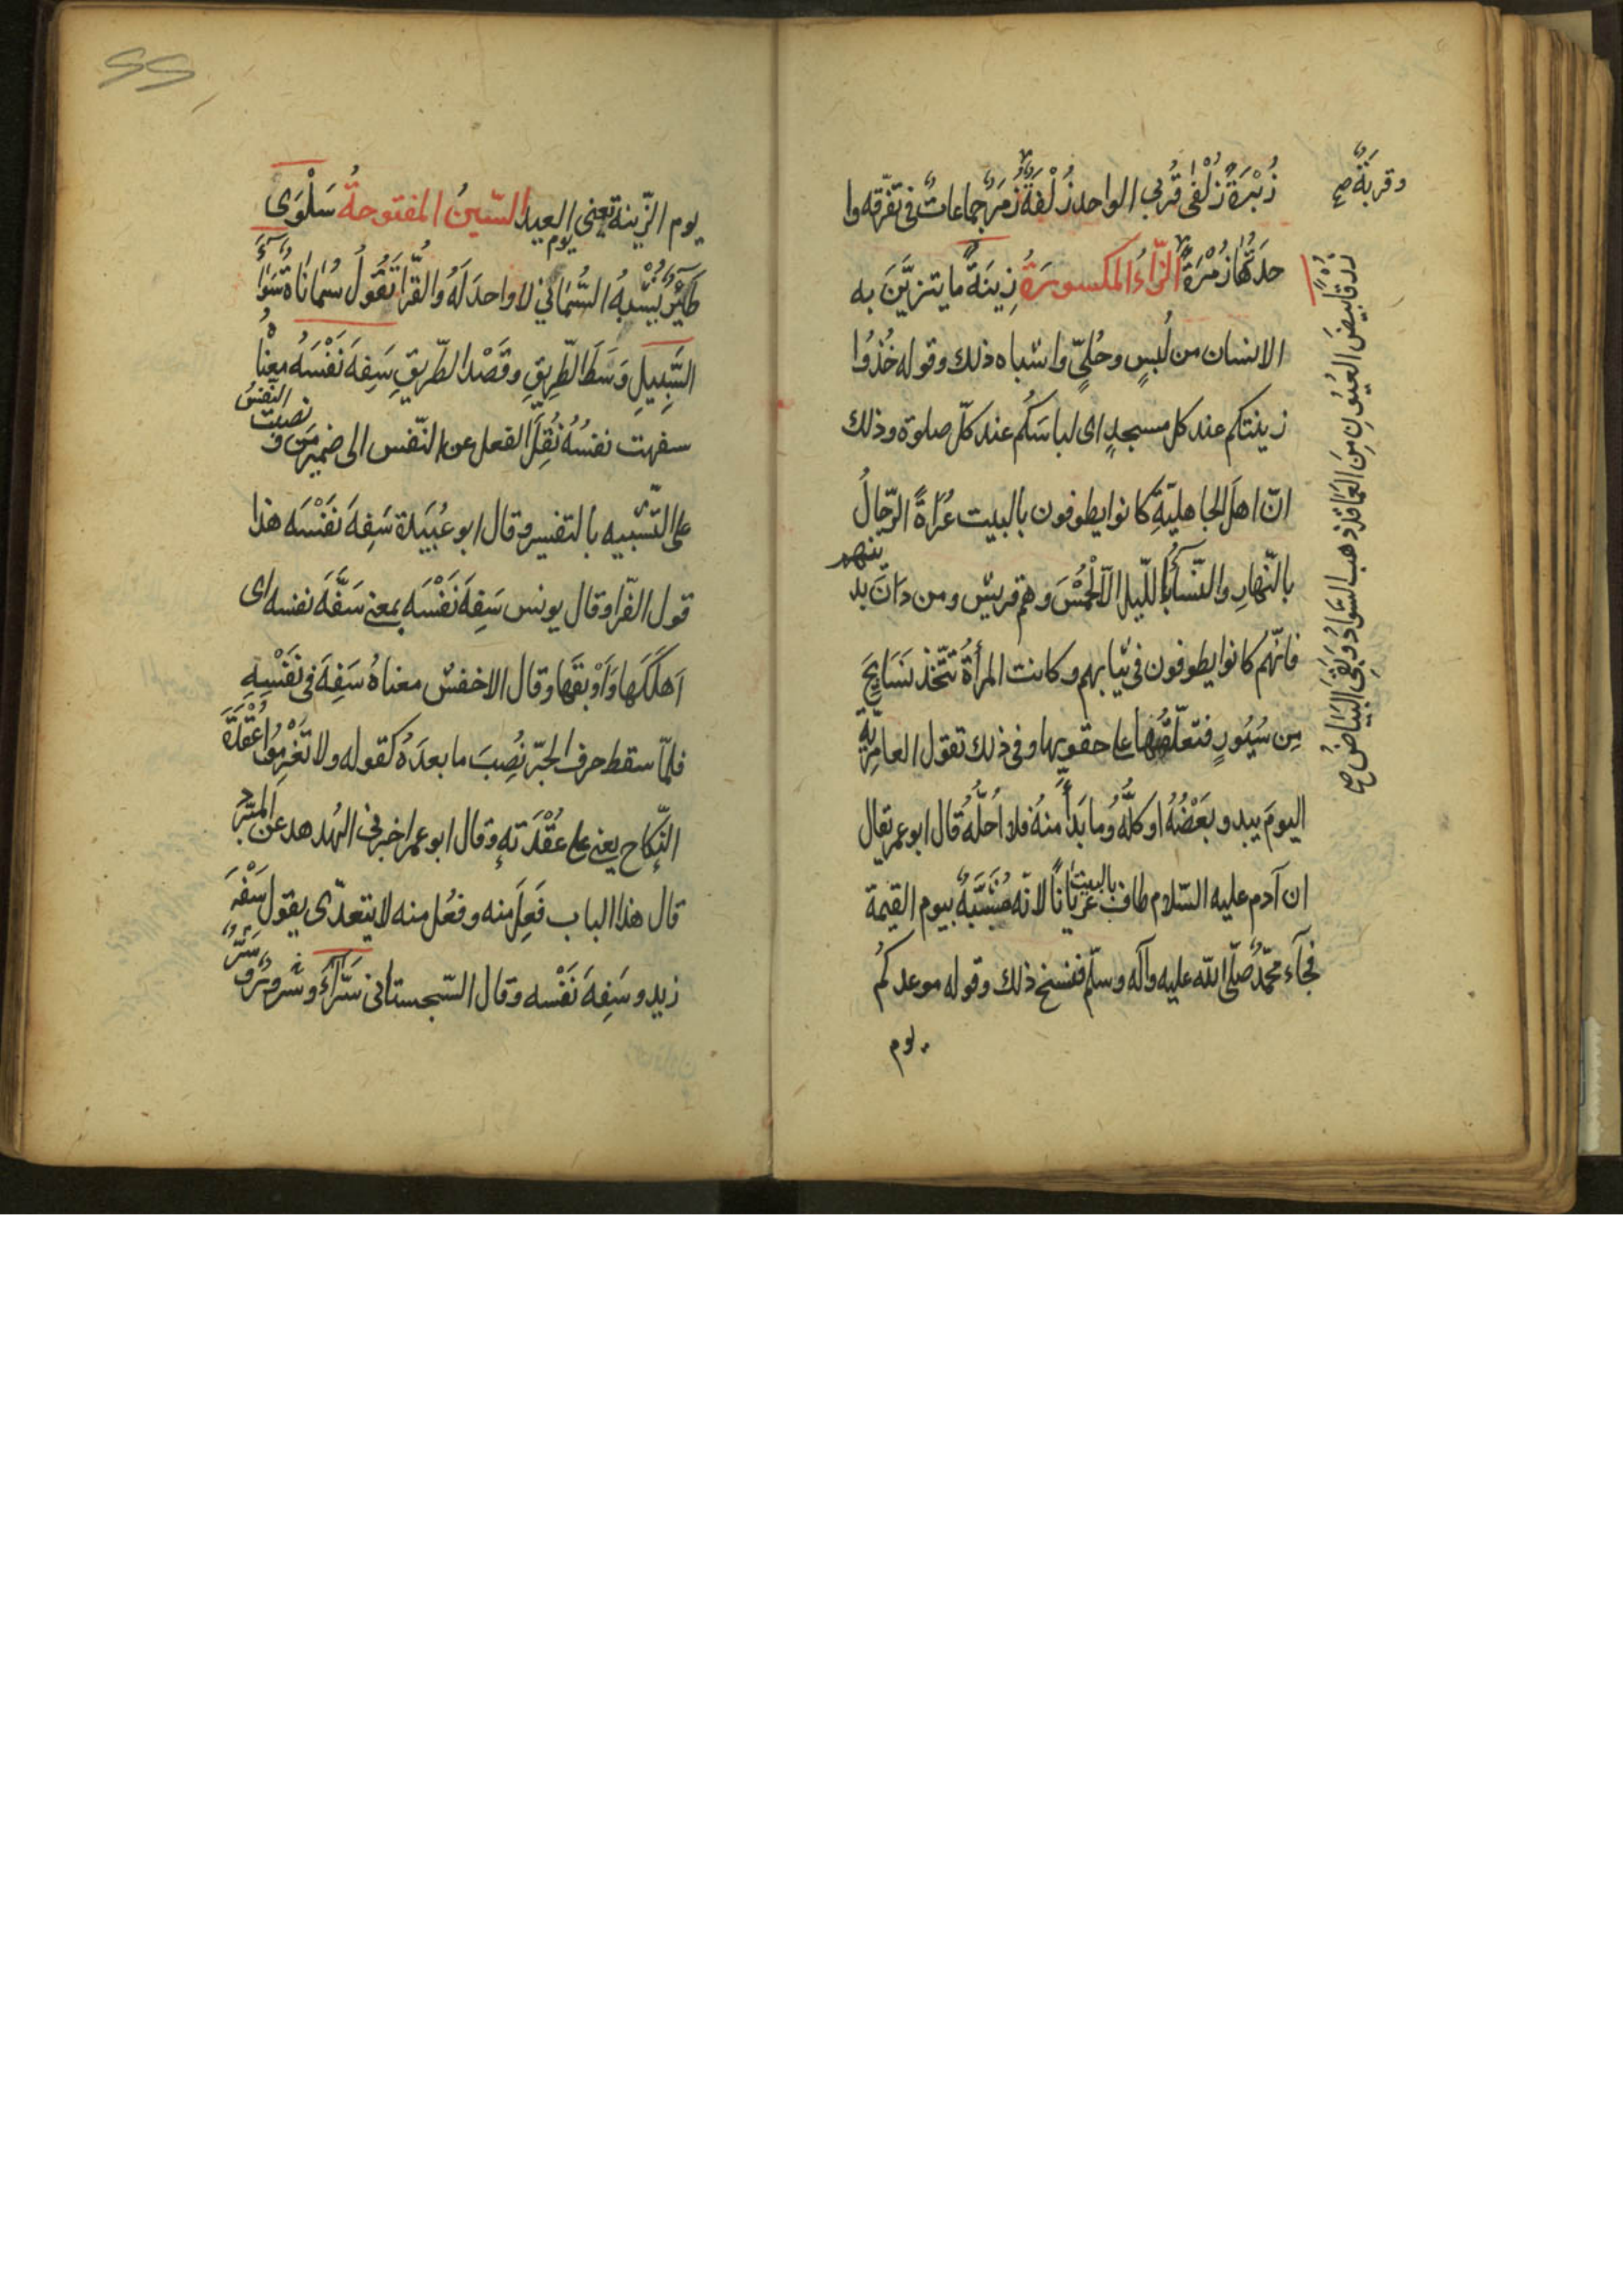 زُبْرَةٌ زُلْفٰى قُرْبي الواحد زُلْفَةٌ زُمَرٌ جماعاتٌ في تفرّقه وا
حدتُها زُمْرَةٌ الزّاءُ المكسورَةُ زِينَةٌ ما يتزيَّنَ به
الانسان من لُبسٍ وحُليٍّ واشباه ذلك وقوله خُذُوا
زينتكم عند كل مسجدٍ اى لباسَكُم عند كلّ صلوة وذلك
انّ اهلَ الجاهليّةِ كانوا يطوفون بالبيت عُراةً الرّجالُ
بالنّهارِ والنّسآءُ بالليل الّا الْحُمْسَ وهم قريش ومن دَانَ بد
ينهم
فانّهم كانوا يطوفون في ثيابهم وكانت المرأةُ تتّخذ نَسَايِجَ
مِن سُيُورٍ فتعلّقُها على حقويها وفي ذلك تقول العامِريّة
اليومَ يبدو بَعْضُهُ او كلُّهُ وما بَدَأ منهُ فلا اُحلُّهُ قال ابو عمر يقال
ان آدم عليه السّلام طاف بالبيت عُرْيَانًا لانّه مُشَبَّهٌ بيوم القيمة
فجآء محمّدٌ صلّى اللّه عليه وآله وسلّم فنسخ ذلك وقوله موعدكُم
يوم
وقربَةٌ صح
زُرْقًا بيضَ العُيُونِ مِنَ العَمَا قد ذهب السَّوادُ وبَقِيَ البَيَاضُ صح
55
يوم الزّينة يعنى يوم العيد السّينُ المفتوحةُ سَلْوَى
طَايْرٌ يُشْبِهُ السُّمَاني لا واحدَ لَهُ والفُرّا تَقُولُ سُمَانَاةٌ سَوَآءَ
السَّبِيلِ وَسَطَ الطّرِيقِ وقَصْدَ الطّريقِ سَفِهَ نَفْسَهُ معْنا
سفهت نفسُهُ نُقِلَ الفعل عن النّفس الى ضمير مَن و
نصبت النّفسُ
على التّشبيه بالتفسير وقال ابو عُبَيدة سَفِهَ نَفْسَه هذا
قول الفرّا وقال يونس سَفِهَ نَفْسَه بمعنى سَفَّهَ نفسه اى
اَهلَكَها وَاَوْبقَها وقال الاخفش معناهُ سَفِهَ في نَفْسِهِ
فلمّا سقط حرف الجرّ نُصِبَ ما بعدَهُ كقوله ولا تَعْزِمُوا عُقْدَةَ
النّكاح يعنى على عُقْدَتهِ وقال ابو عمر اخبرنى الهُدهد عَن المبَرّد
قال هذا الباب فَعِلَ منه وفعُل منه لا يتعدّى يقول سَفُهَ
زيد وسَفِهَ نَفْسه وقال السّجستانى سَرَّآءَ وسُرورٌ